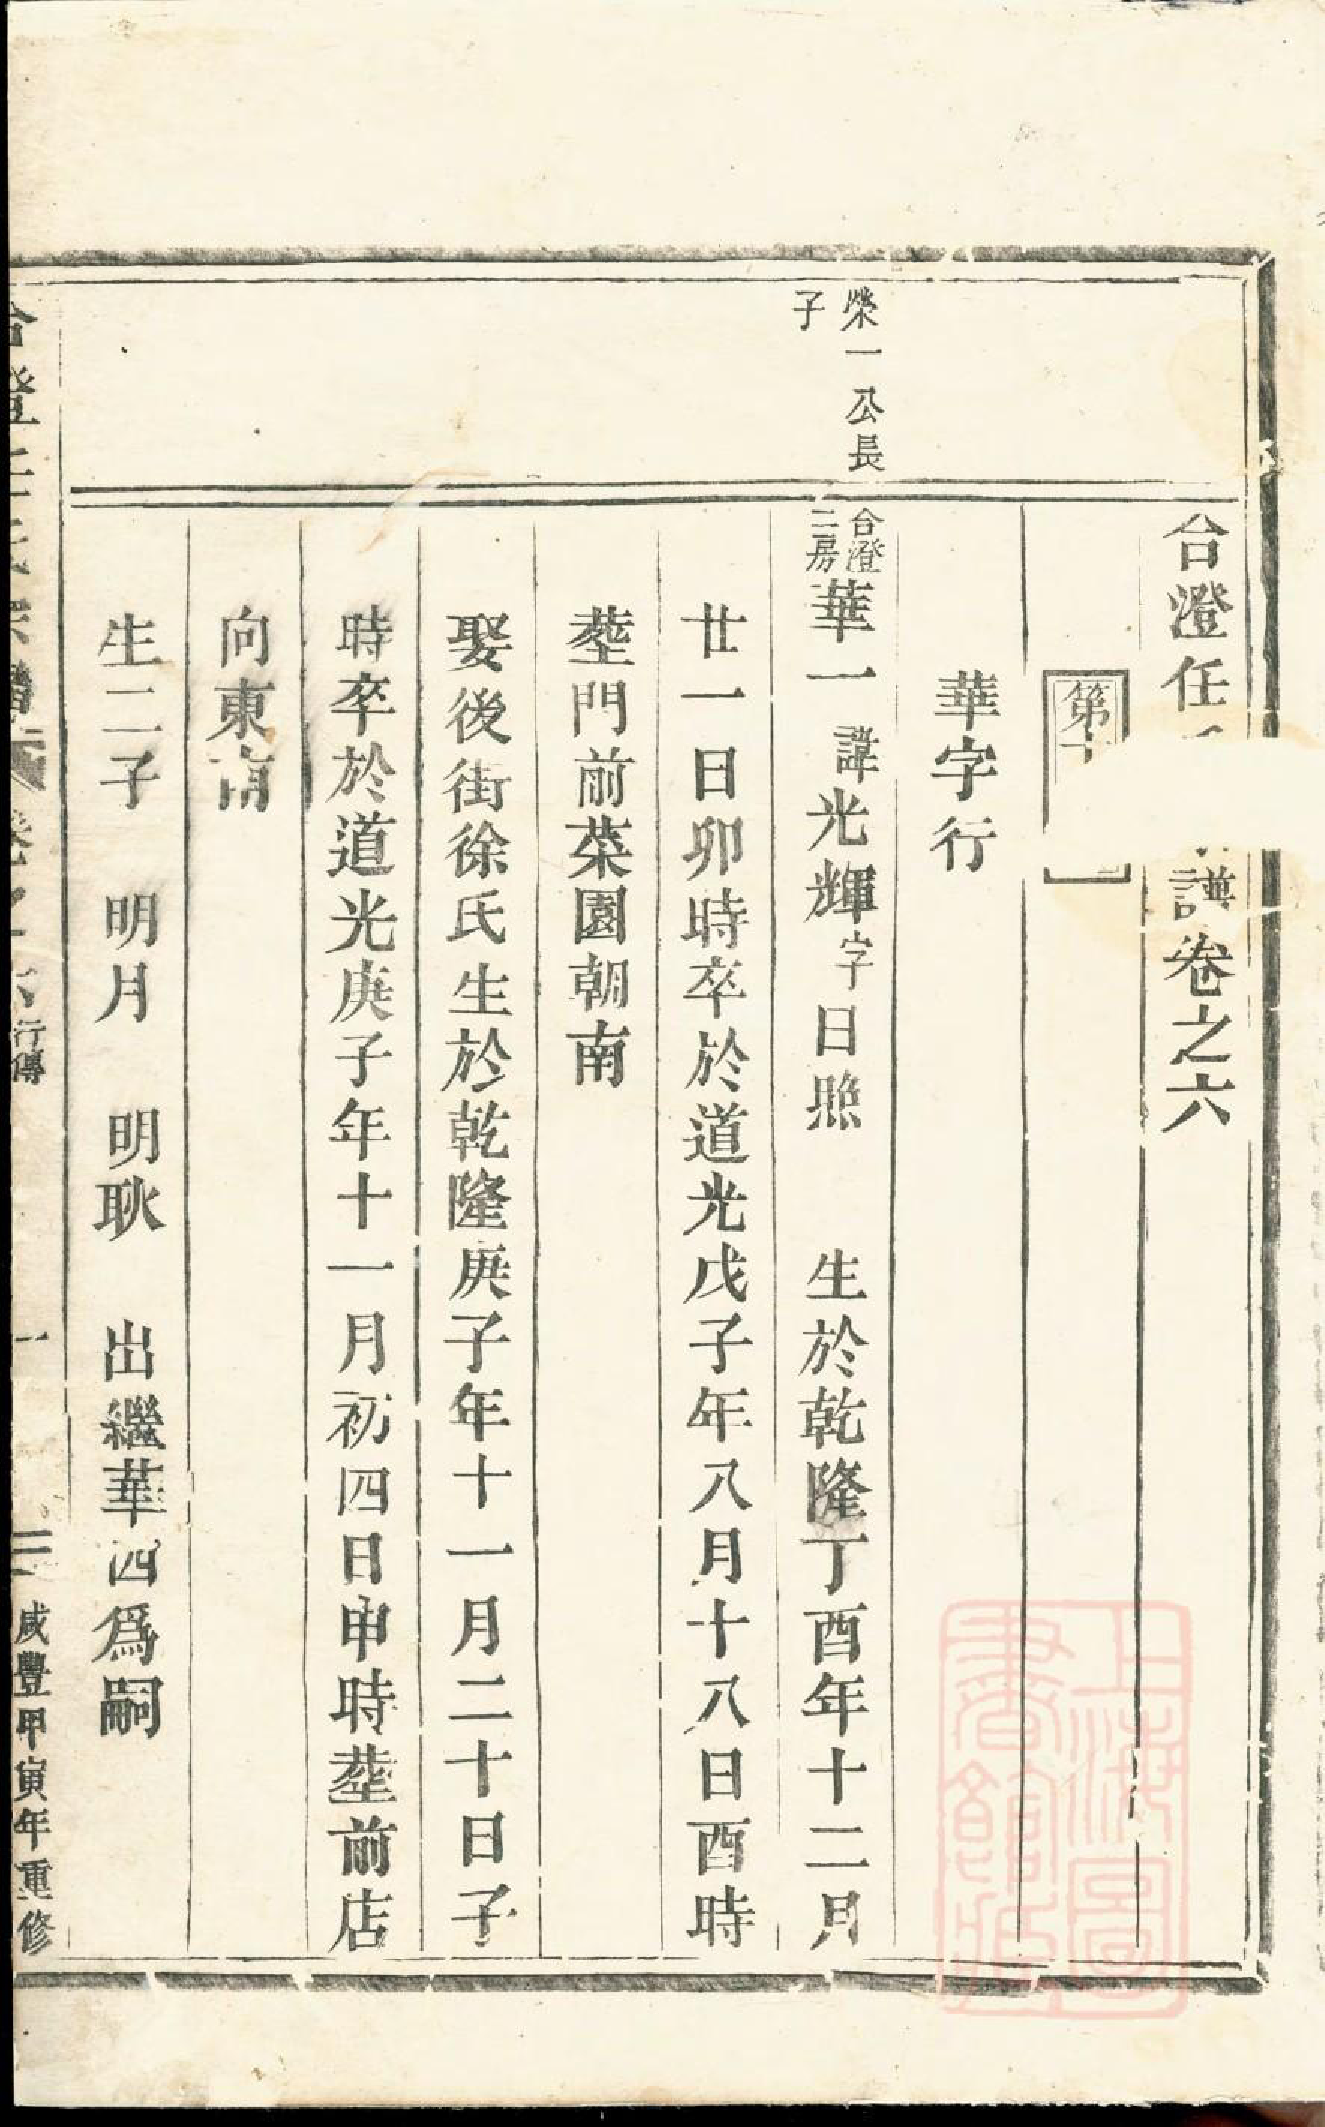 台澄任
譜卷之六
第十
華字行
榮一公長
子
台澄
二房
華一諱光輝字日煦 生於乾隆丁酉年十二月
廿一日卯時卒於道光戊子年八月十八日酉時
塟門前菜園朝南
娶後街徐氏生於乾隆庚子年十一月二十日子
時卒於道光庚子年十一月初四日申時塟前店
向東南
生二子 明月 明耿 出繼華四爲嗣
台澄任氏宗譜 卷之六 行傳 一 咸豐甲寅年重修
上海圖
書館藏